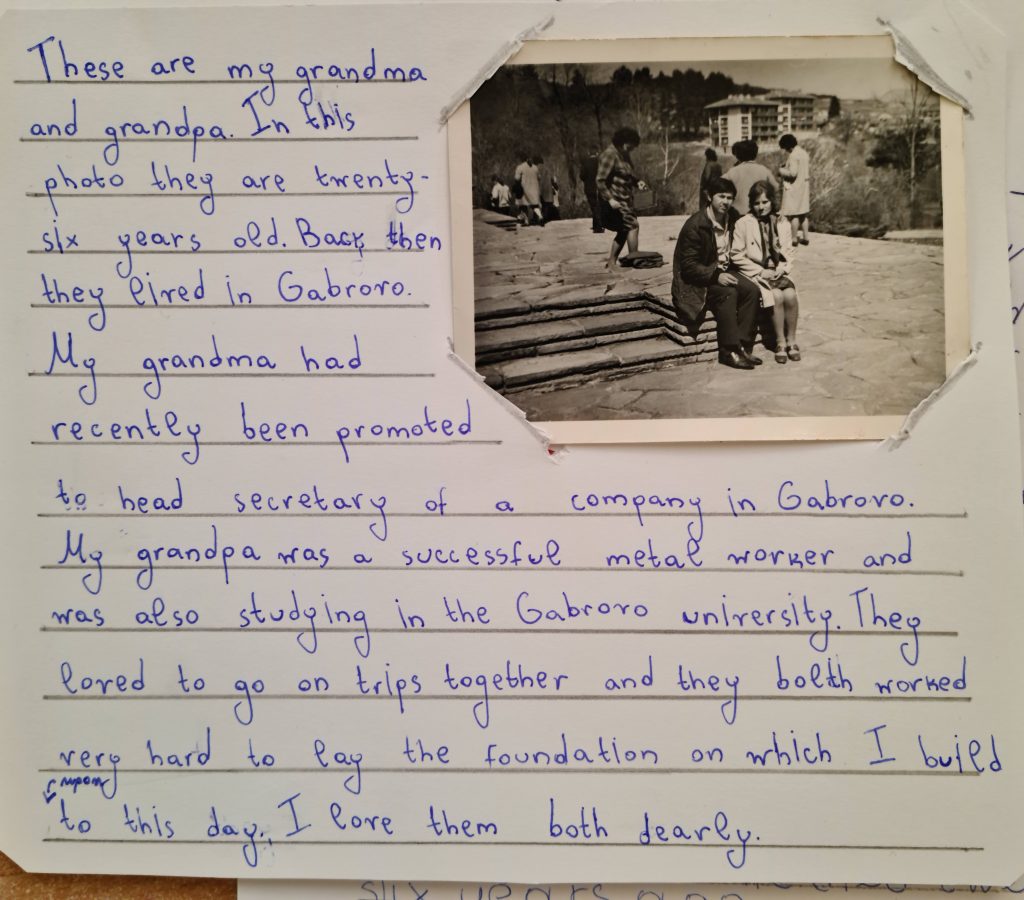 These are my grandma
and grandpa. In this
photo they are twenty-
six years old. Back then
they lived in Gabrovo.
My grandma had
recently been promoted
to head secretary of a company in Gabrovo.
My grandpa was a successful metal worker and
was also studying in the Gabrovo university. They
loved to go on trips together and they bolth worked
very hard to lay the foundation on which I build
upon
to this day. I love them both dearly.
six years ago